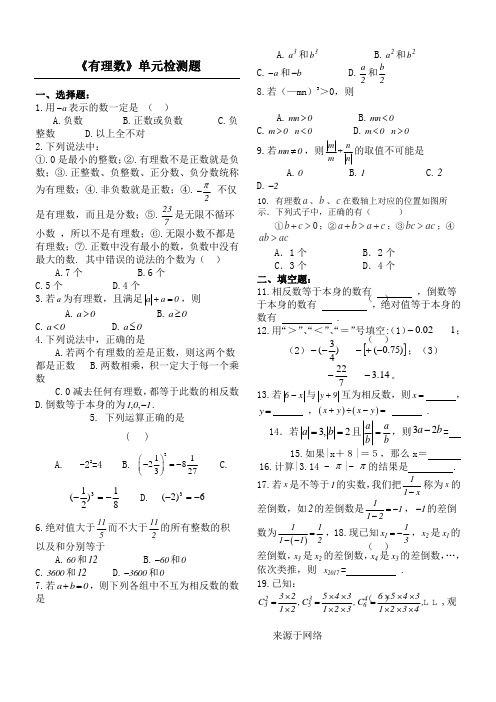 《有理数》单元检测题
一、选择题:
1.用 −a 表示的数一定是 （ ）
A.负数 B.正数或负数 C.负
整数 D.以上全不对
2.下列说法中:
①.0 是最小的整数;②.有理数不是正数就是负
数;③.正整数、负整数、正分数、负分数统称
为有理数;④.非负数就是正数;④. −π/2 不仅
是有理数,而且是分数;⑤. 23/7 是无限不循环
小数 ,所以不是有理数;⑥.无限小数不都是
有理数;⑦.正数中没有最小的数,负数中没有
最大的数. 其中错误的说法的个数为（ ）
A.7 个 B.6 个
C.5 个 D.4 个
3.若 a 为有理数,且满足 |a|+a=0 ,则
A. a>0 B. a≥0
C. a<0 D. a≤0
4.下列说法中,正确的是
A.若两个有理数的差是正数,则这两个数
都是正数 B.两数相乘,积一定大于每一个乘
数
C.0 减去任何有理数,都等于此数的相反数
D.倒数等于本身的为 1,0,−1 .
5. 下列运算正确的是
( )
A. -2²=4 B. (−2 1/3)²=−8 1/27 C.
(−1/2)³=−1/8 D. (−2)³=−6
6.绝对值大于 11/5 而不大于 11/2 的所有整数的积
以及和分别等于
A. 60 和 12 B. −60 和 0
C. 3600 和 12 D. −3600 和 0
7.若 a+b=0 ,则下列各组中不互为相反数的数
是
A. a³ 和 b³ B. a² 和 b²
C. −a 和 −b D. a/2 和 b/2
8.若（—mn）³＞0，则
A. mn>0 B. mn<0
C. m>0 n<0 D. m<0 n>0
9.若 mn≠0 ，则 |m|/m + n/|n| 的取值不可能是
A. 0 B. 1 C. 2
D. −2
10. 有理数 a 、b 、c 在数轴上对应的位置如图所
示. 下列式子中，正确的有（ ）
① b+c>0；② a+b>a+c；③ bc>ac；④
ab>ac
A．1个 B．2个
C．3个 D．4个
二、填空题:
11.相反数等于本身的数有 ，倒数等
于本身的数有 ,绝对值等于本身的
数有 .
12.用“＞”、“＜”、“＝”号填空:(1)−0.02 1；
（ ）
（2） −(−3/4) −[+(−0.75)]；（3）
−22/7 −3.14 。
13.若 |6−x| 与 |y+9| 互为相反数，则 x= ，
y= ， (x+y)÷(x−y)= .
14．若 |a|=3,|b|=2 且 |a/b|=a/b ，则 3a−2b=
15.如果|x＋8|＝5，那么 x＝
16.计算|3.14 - π|- π 的结果是 .
17.若 x 是不等于 1 的实数,我们把 1/(1−x) 称为 x 的
差倒数，如 2 的差倒数是 1/(1−2)=−1 ，−1 的差倒
数为 1/(1−(−1))=1/2 ，18.现已知 x₁=−1/3 ，x₂ 是 x₁ 的
（ ）
差倒数，x₃ 是 x₂ 的差倒数，x₄ 是 x₃ 的差倒数，…，
依次类推，则 x₂₀₁₇ = .
19.已知:
C₃²=(3×2)/(1×2), C₅³=(5×4×3)/(1×2×3), C₆⁴=(6×5×4×3)/(1×2×3×4),LL ,观
来源于网络